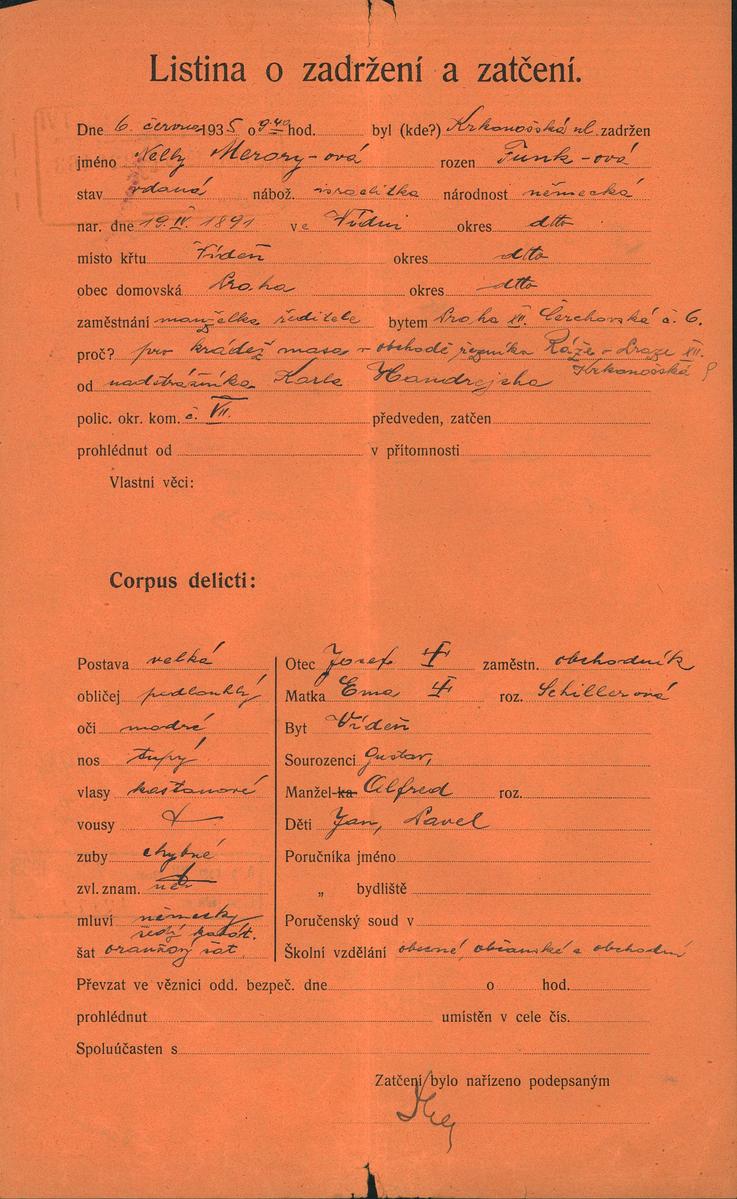 Listina o zadržení a zatčení.
Dne 6. června 1935 o 9 40 hod. byl (kde?) Krkonošská ul. zadržen
jméno Nelly Merory-ová rozen Funk-ová
stav vdaná nábož. israelitka národnost německá
nar. dne 19. IV. 1891 ve Vídni okres dtto
místo křtu Vídeň okres dtto
obec domovská Praha okres dtto
zaměstnání manželka ředitele bytem Praha XII. Čerchovská č. 6.
proč? pro krádež masa v obchodě řezníka Ráže v Praze XII.
Krkonošská
od nadstrážníka Karla Handrejcha
polic. okr. kom. č. VII. předveden, zatčen
prohlédnut od v přítomnosti
Vlastní věci:
Corpus delicti:
Postava velká
obličej podlouhlý
oči modré
nos tupý
vlasy kaštanové
vousy
zuby chybné
zvl. znam.
mluví německy
šedý kabát.
šat oranžový šat.
Otec Josef zaměstn. obchodník
Matka Ema roz. Schillerová
Byt Vídeň
Sourozenci Gustav,
Manžel-ka Alfred roz.
Děti Jan, Pavel
Poručníka jméno
„ bydliště
Poručenský soud v
Školní vzdělání obecné, občanské a obchodní
Převzat ve věznici odd. bezpeč. dne o hod.
prohlédnut umístěn v cele čís.
Spoluúčasten s
Zatčení bylo nařízeno podepsaným